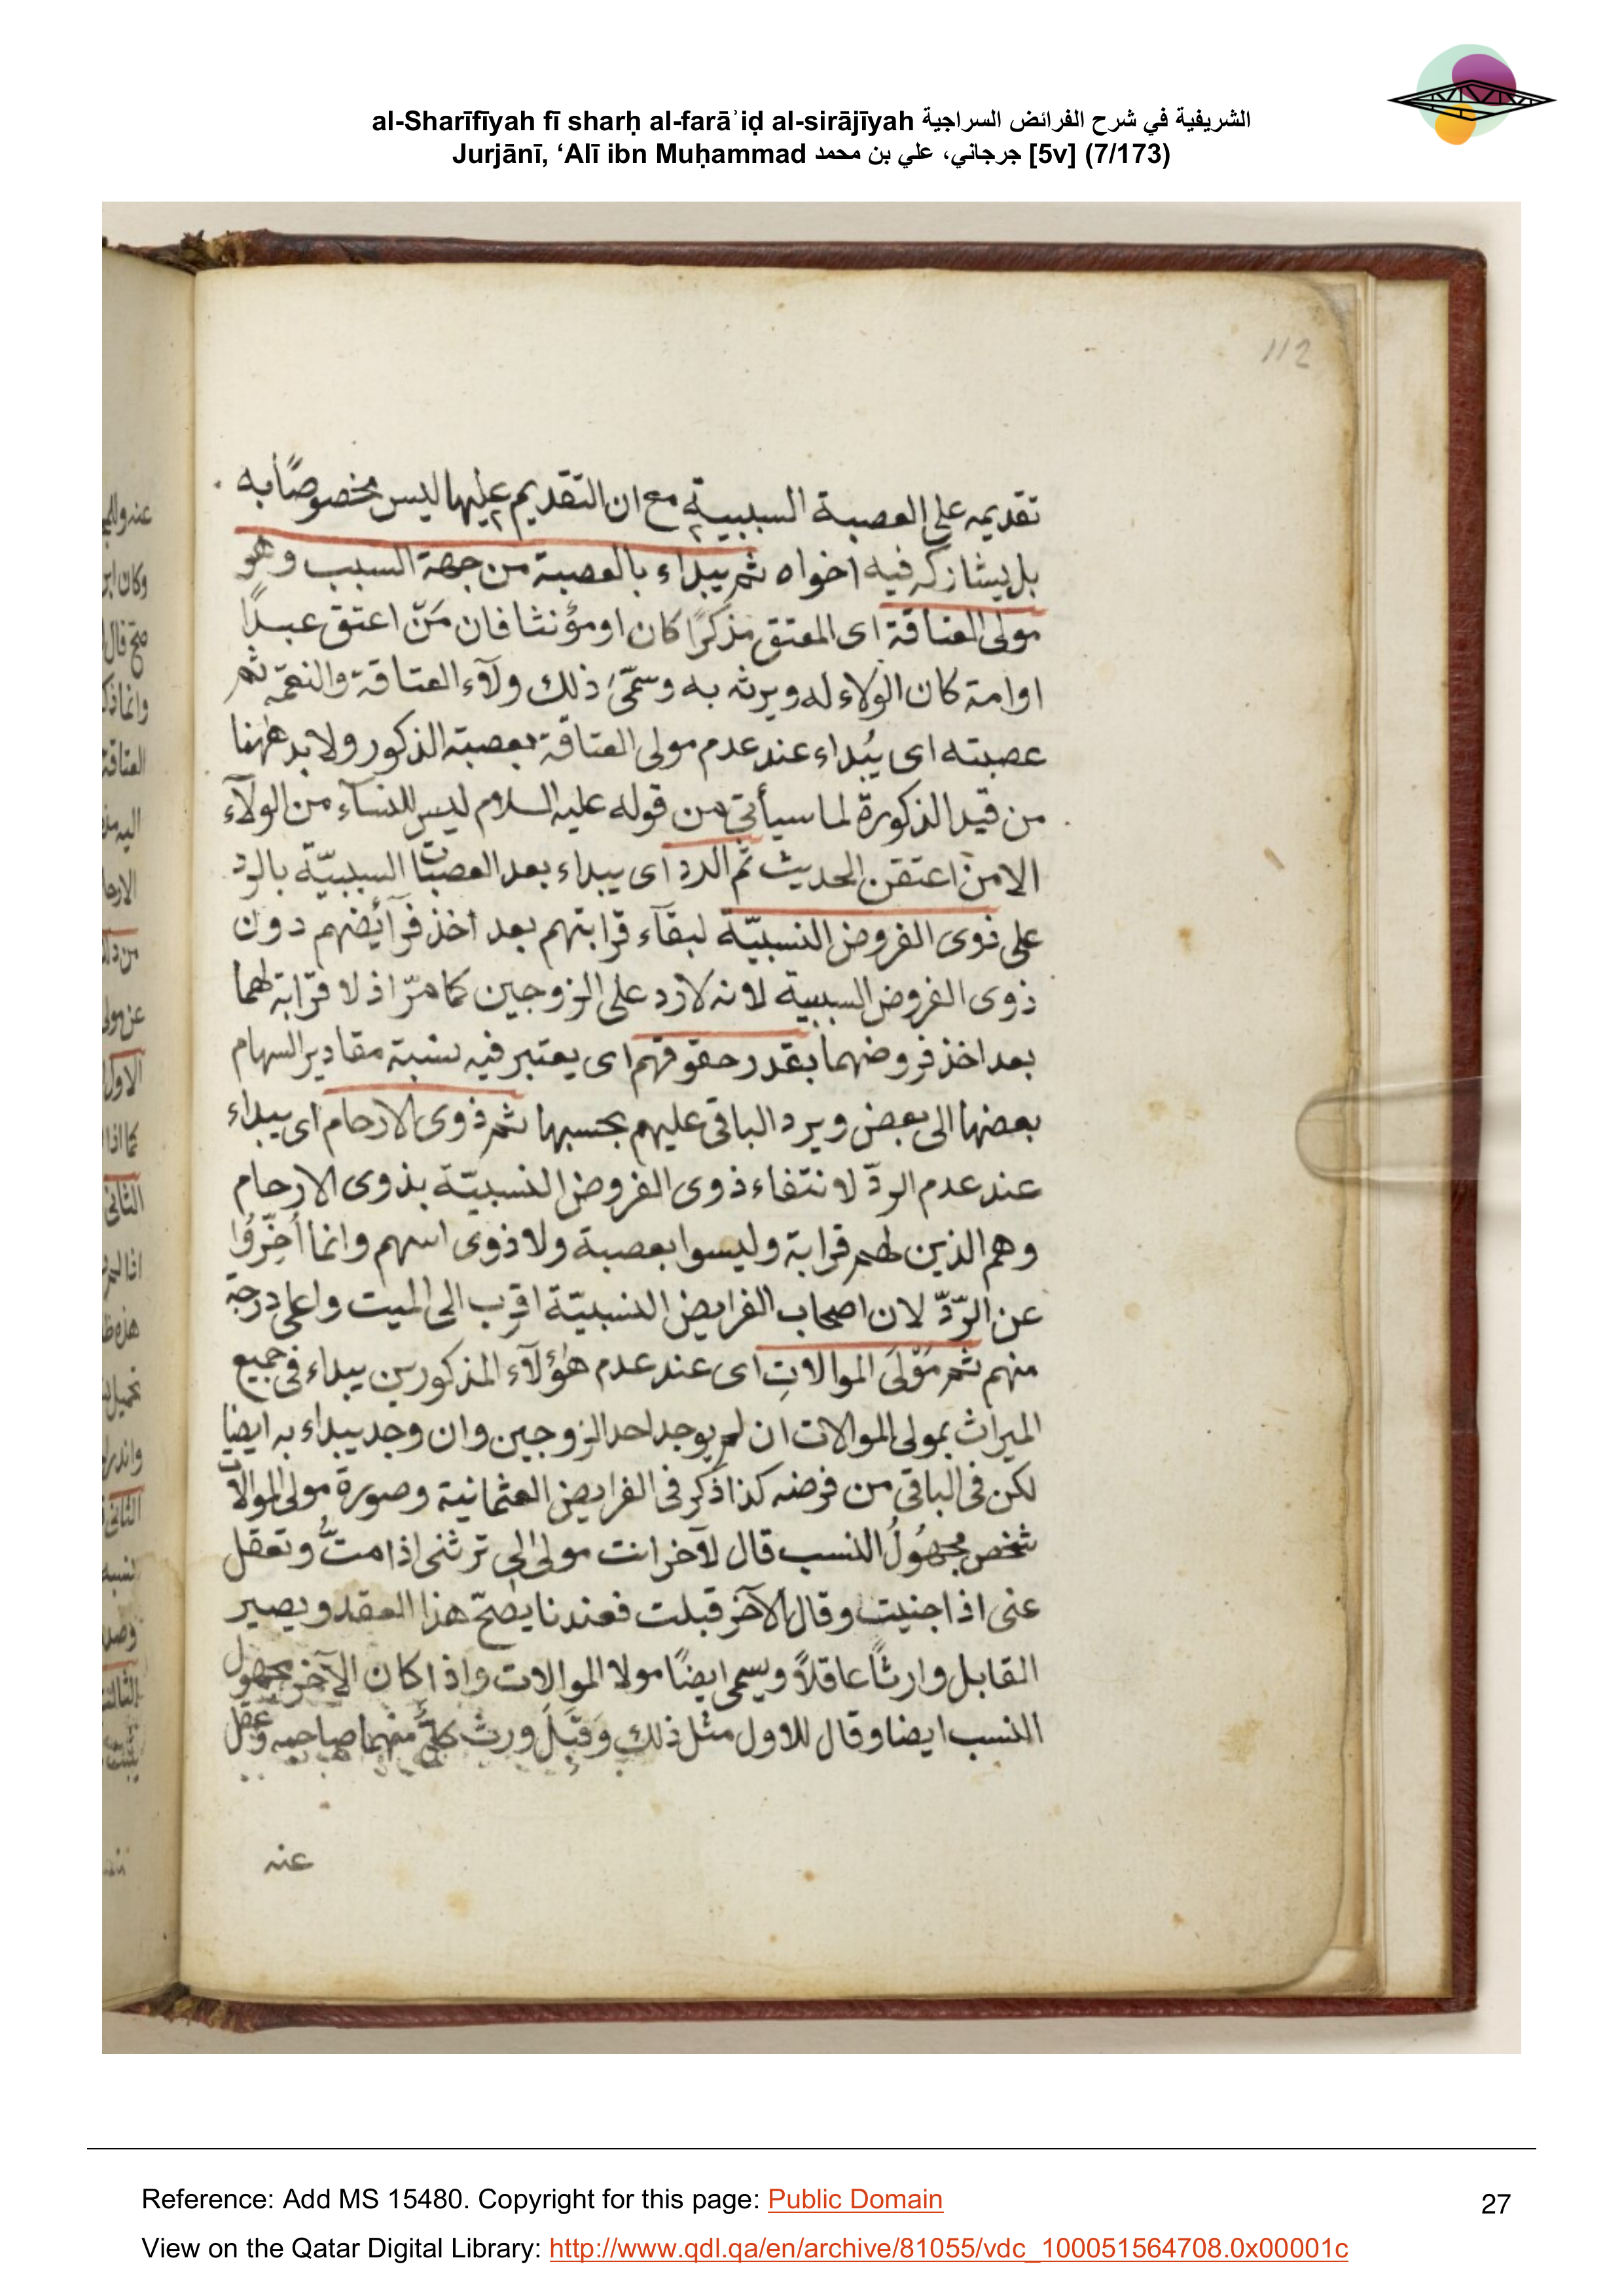 al-Sharīfīyah fī sharḥ al-farāʾiḍ al-sirājīyah الشريفية في شرح الفرائض السراجية
Jurjānī, ‘Alī ibn Muḥammad جرجاني، علي بن محمد [5v] (7/173)
112
تقديمه على العصبة السببية مع ان التقديم عليها ليس مخصوصًا به
بل يشاركه فيه اخواه ثم يبداء بالعصبة من جهة السبب وهو
مولى العتاقة اى المعتق مذكرًا كان او مؤنثا فان مَنّ اعتق عبدًا
او امة كان الولاء له ويرثه به وسمّى ذلك ولآء العتاقة والنعمة ثم
عصبته اى يُبداء عند عدم مولى العتاقة بعصبته الذكور ولا بد ههنا
من قيد الذكورة لما سيأتى من قوله عليه السلام ليس للنسآء من الولآء
الا من اعتقن الحديث ثم الرد اى يبداء بعد العصبات السببيّة بالرد
على ذوى الفروض النسبيّة لبقآء قرابتهم بعد اخذ فرآئضهم دون
ذوى الفروض السببية لانه لا رد على الزوجين كما مرّ اذ لا قرابة لهما
بعد اخذ فروضهما بقدر حقوقهم اى يعتبر فيه نسبة مقادير السهام
بعضها الى بعض ويرد الباقى عليهم بحسبها ثم ذوى الارحام اى يبداء
عند عدم الردّ لانتفاء ذوى الفروض النسبيّة بذوى الارحام
وهم الذين لهم قرابة وليسوا بعصبة ولا ذوى اسهم وانما أُخِّرُوا
عن الرّدّ لان اصحاب الفرايض النسبيّة اقرب الى الميت واعلى درجة
منهم ثم مَوْلَى الموالاتِ اى عند عدم هٰؤلآء المذكورين يبداء فى جميع
الميراث بمولى الموالات ان لم يوجد احد الزوجين وان وجد يبداء به ايضا
لكن فى الباقى من فرضه كذا ذكر فى الفرايض العثمانية وصورة مولى الموالات
شخص مجهُولُ النسب قال لآخر انت مولىٰ لى ترثنى اذا متُّ وتعقل
عنى اذا جنيت وقال الآخر قبلت فعندنا يصحّ هذا العقد ويصير
القابل وارثًا عاقلاً ويسمى ايضًا مولا الموالات واذا كان الآخر مجهول
النسب ايضا وقال للاول مثل ذلك وَقَبِلَ ورث كلٌّ منهما صاحبه وعقل
عنه
Reference: Add MS 15480. Copyright for this page: Public Domain
27
View on the Qatar Digital Library: http://www.qdl.qa/en/archive/81055/vdc_100051564708.0x00001c